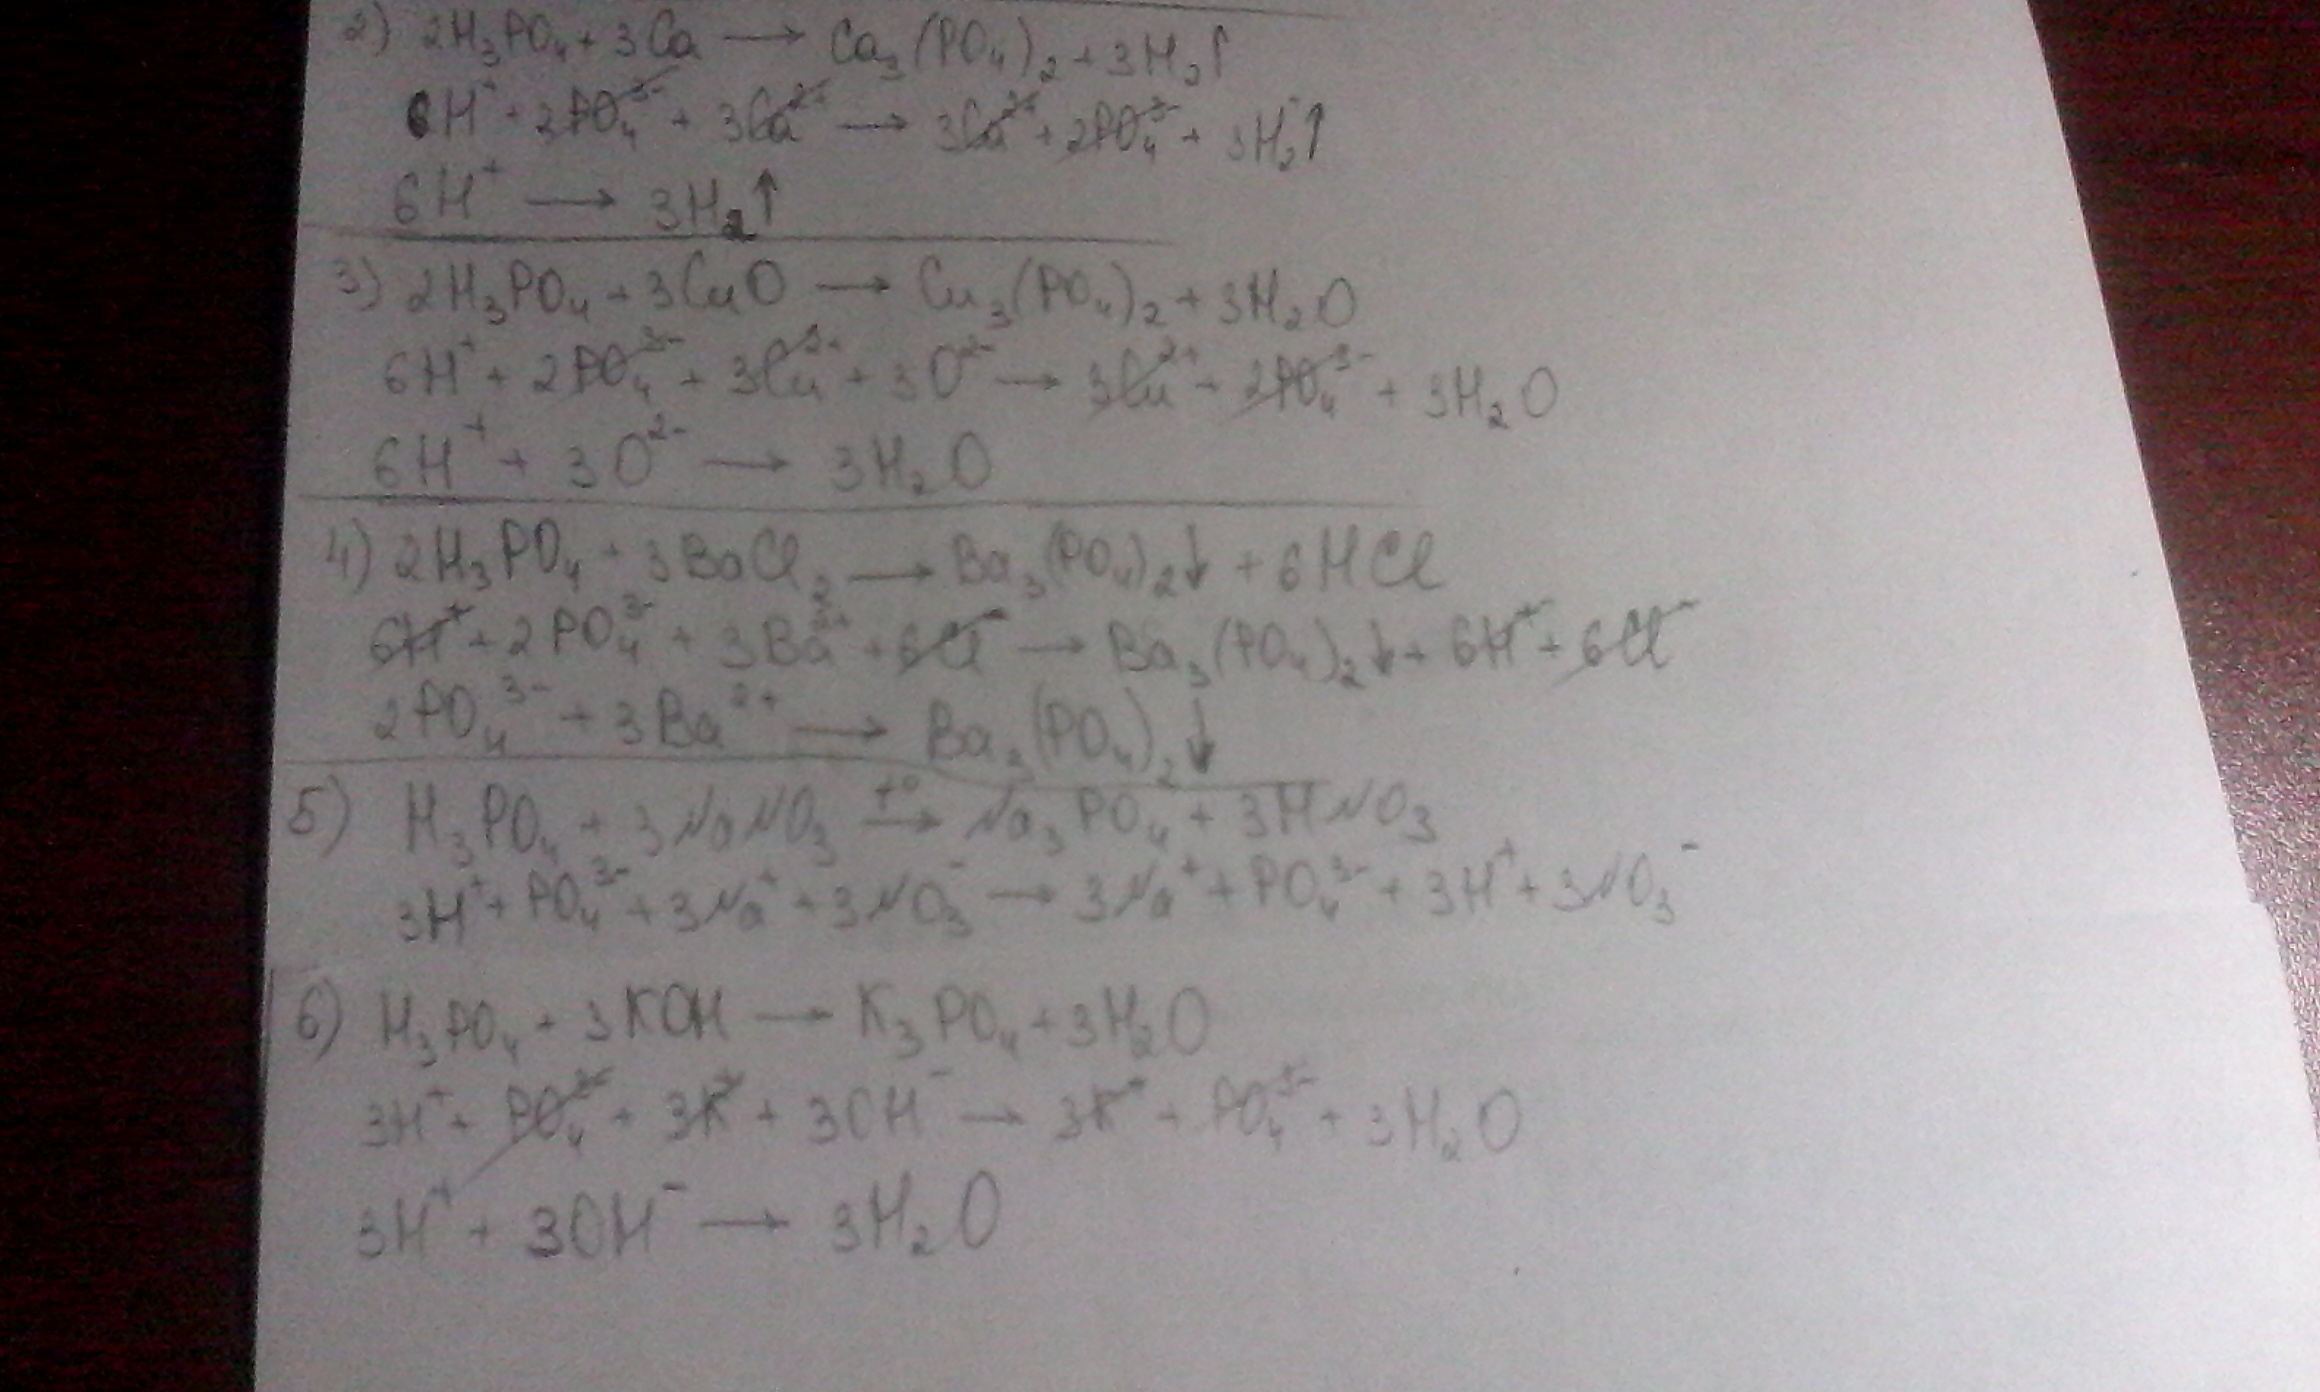 2) 2H₃PO₄ + 3Ca → Ca₃(PO₄)₂ + 3H₂↑
6H⁺ + 2PO₄³⁻ + 3Ca²⁺ → 3Ca²⁺ + 2PO₄³⁻ + 3H₂↑
6H⁺ → 3H₂↑
3) 2H₃PO₄ + 3CuO → Cu₃(PO₄)₂ + 3H₂O
6H⁺ + 2PO₄³⁻ + 3Cu²⁺ + 3O²⁻ → 3Cu²⁺ + 2PO₄³⁻ + 3H₂O
6H⁺ + 3O²⁻ → 3H₂O
4) 2H₃PO₄ + 3BaCl₂ → Ba₃(PO₄)₂↓ + 6HCl
6H⁺ + 2PO₄³⁻ + 3Ba²⁺ + 6Cl⁻ → Ba₃(PO₄)₂↓ + 6H⁺ + 6Cl⁻
2PO₄³⁻ + 3Ba²⁺ → Ba₃(PO₄)₂↓
5) H₃PO₄ + 3NaNO₃ t°→ Na₃PO₄ + 3HNO₃
3H⁺ + PO₄³⁻ + 3Na⁺ + 3NO₃⁻ → 3Na⁺ + PO₄³⁻ + 3H⁺ + 3NO₃⁻
6) H₃PO₄ + 3KOH → K₃PO₄ + 3H₂O
3H⁺ + PO₄³⁻ + 3K⁺ + 3OH⁻ → 3K⁺ + PO₄³⁻ + 3H₂O
3H⁺ + 3OH⁻ → 3H₂O